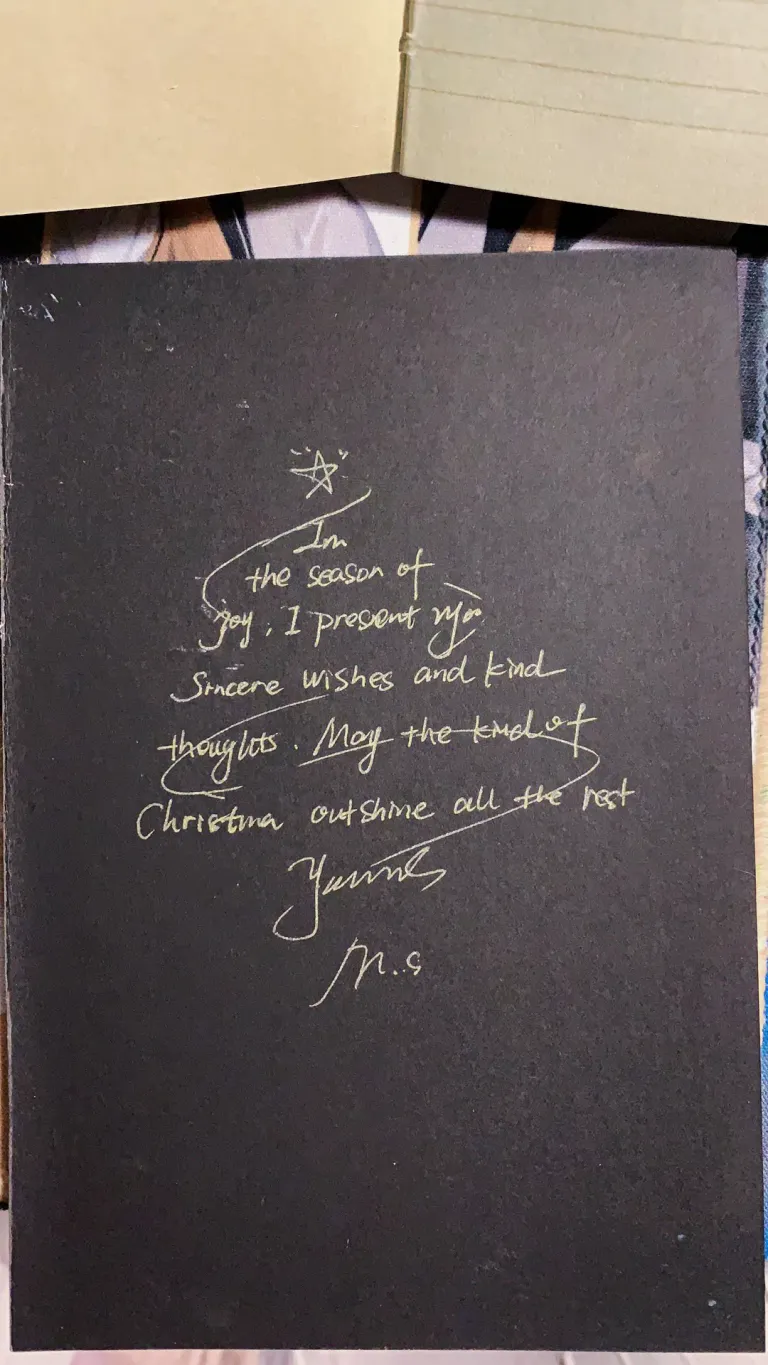 In
the season of
joy, I present my
Sincere wishes and kind
thoughts. May the kind of
Christma outshine all the rest
M.S